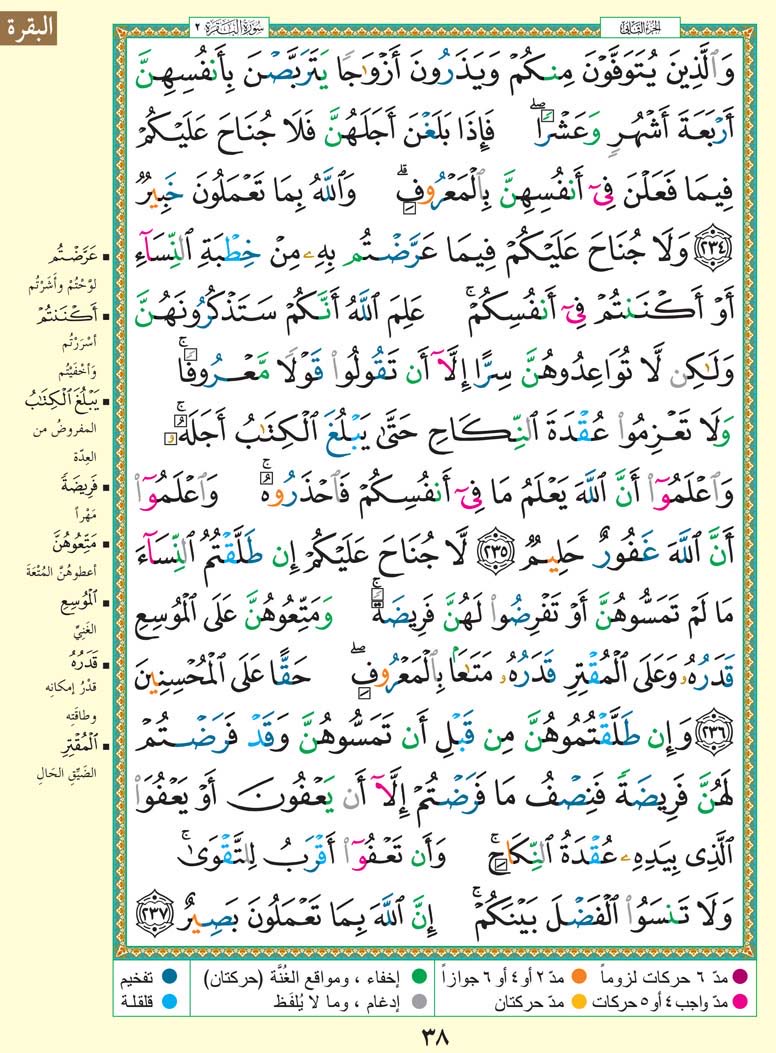 البقرة
سورة البقرة ٢
الجزء الثاني
وَٱلَّذِينَ يُتَوَفَّوْنَ مِنكُمْ وَيَذَرُونَ أَزْوَٰجًا يَتَرَبَّصْنَ بِأَنفُسِهِنَّ
أَرْبَعَةَ أَشْهُرٍ وَعَشْرًا ۖ فَإِذَا بَلَغْنَ أَجَلَهُنَّ فَلَا جُنَاحَ عَلَيْكُمْ
فِيمَا فَعَلْنَ فِىٓ أَنفُسِهِنَّ بِٱلْمَعْرُوفِ ۗ وَٱللَّهُ بِمَا تَعْمَلُونَ خَبِيرٌ
٢٣٤ وَلَا جُنَاحَ عَلَيْكُمْ فِيمَا عَرَّضْتُم بِهِۦ مِنْ خِطْبَةِ ٱلنِّسَآءِ
أَوْ أَكْنَنتُمْ فِىٓ أَنفُسِكُمْ ۚ عَلِمَ ٱللَّهُ أَنَّكُمْ سَتَذْكُرُونَهُنَّ
وَلَٰكِن لَّا تُوَاعِدُوهُنَّ سِرًّا إِلَّآ أَن تَقُولُوا۟ قَوْلًا مَّعْرُوفًا ۚ
وَلَا تَعْزِمُوا۟ عُقْدَةَ ٱلنِّكَاحِ حَتَّىٰ يَبْلُغَ ٱلْكِتَٰبُ أَجَلَهُۥ ۚ
وَٱعْلَمُوٓا۟ أَنَّ ٱللَّهَ يَعْلَمُ مَا فِىٓ أَنفُسِكُمْ فَٱحْذَرُوهُ ۚ وَٱعْلَمُوٓا۟
أَنَّ ٱللَّهَ غَفُورٌ حَلِيمٌ ٢٣٥ لَّا جُنَاحَ عَلَيْكُمْ إِن طَلَّقْتُمُ ٱلنِّسَآءَ
مَا لَمْ تَمَسُّوهُنَّ أَوْ تَفْرِضُوا۟ لَهُنَّ فَرِيضَةً ۚ وَمَتِّعُوهُنَّ عَلَى ٱلْمُوسِعِ
قَدَرُهُۥ وَعَلَى ٱلْمُقْتِرِ قَدَرُهُۥ مَتَٰعًۢا بِٱلْمَعْرُوفِ ۖ حَقًّا عَلَى ٱلْمُحْسِنِينَ
٢٣٦ وَإِن طَلَّقْتُمُوهُنَّ مِن قَبْلِ أَن تَمَسُّوهُنَّ وَقَدْ فَرَضْتُمْ
لَهُنَّ فَرِيضَةً فَنِصْفُ مَا فَرَضْتُمْ إِلَّآ أَن يَعْفُونَ أَوْ يَعْفُوَا۟
ٱلَّذِى بِيَدِهِۦ عُقْدَةُ ٱلنِّكَاحِ ۚ وَأَن تَعْفُوٓا۟ أَقْرَبُ لِلتَّقْوَىٰ ۚ
وَلَا تَنسَوُا۟ ٱلْفَضْلَ بَيْنَكُمْ ۚ إِنَّ ٱللَّهَ بِمَا تَعْمَلُونَ بَصِيرٌ ٢٣٧
عَرَّضْتُم
لوّحْتُمْ وأشَرْتُم
أَكْنَنتُمْ
أسْرَرْتُم
وأخْفَيْتُم
يَبْلُغَ ٱلْكِتَٰبُ
المفروضُ من
العِدّة
فَرِيضَةً
مَهْراً
مَتِّعُوهُنَّ
أعطوهُنّ المُتْعَةَ
ٱلْمُوسِعِ
الغَنِيّ
قَدَرُهُ
قدْرُ إمكانِه
وطاقتِه
ٱلْمُقْتِرِ
الضّيِّقِ الحَالِ
مدّ ٦ حركات لزوماً
مدّ ٢ أو ٤ أو ٦ جوازاً
إخفاء ، ومواقع الغُنَّة (حركتان)
تفخيم
مدّ واجب ٤ أو ٥ حركات
مدّ حركتان
إدغام ، وما لا يُلفَظ
قلقلة
٣٨